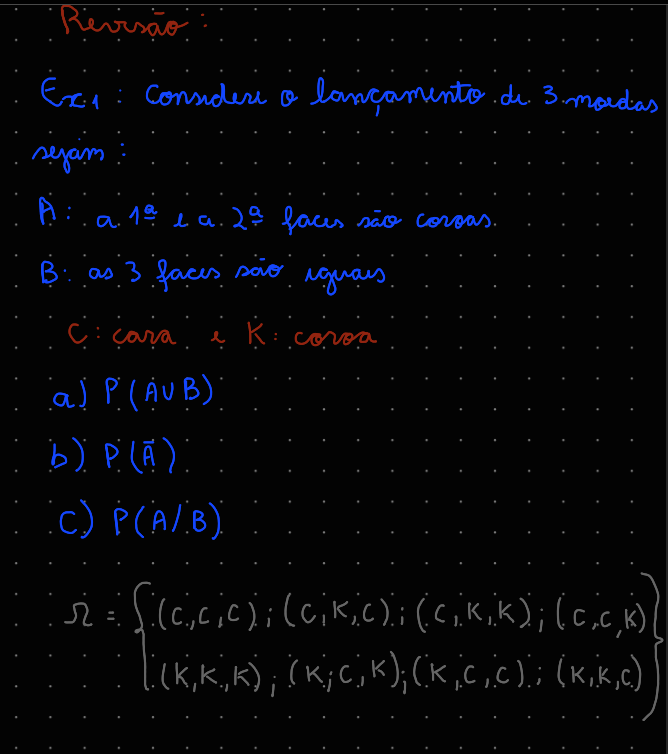 Revisão:
Ex.1: Considere o lançamento de 3 moedas
sejam:
A: a 1ª e a 2ª faces são coroas.
B: as 3 faces são iguais
C: cara e K: coroa
a) P(A∪B)
b) P(Ā)
c) P(A/B)
Ω = {(C,C,C); (C,K,C); (C,K,K); (C,C,K)
(K,K,K); (K,C,K); (K,C,C); (K,K,C)}